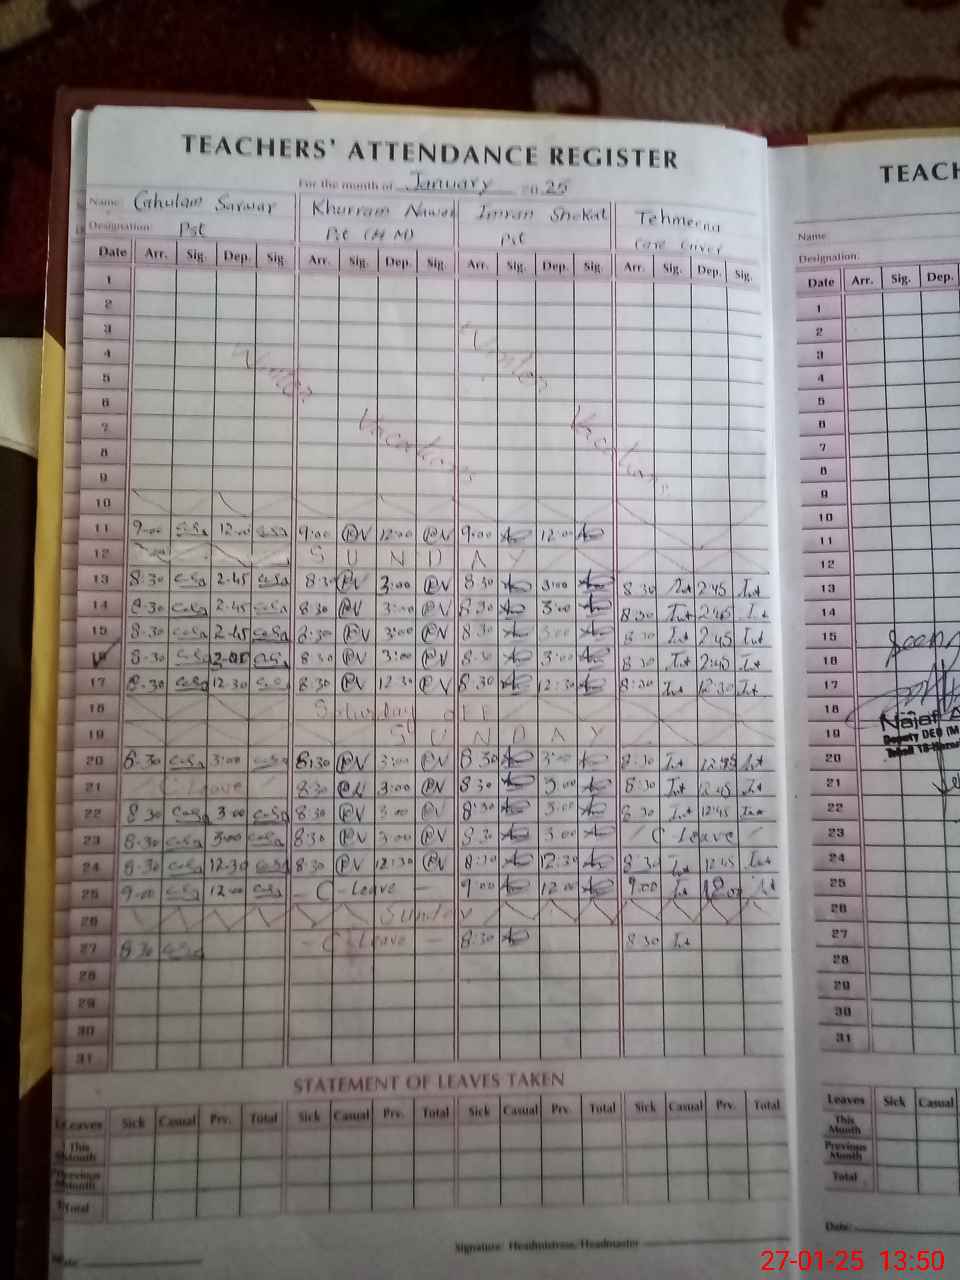 TEACHERS' ATTENDANCE REGISTER
For the month of January 2025
Name: Ghulam Sarwar Khurram Nawaz Imran Shokat Tehmeena
Designation: Pst Pst (H M) Pst Care Giver
Date Arr. Sig. Dep. Sig. Arr. Sig. Dep. Sig. Arr. Sig. Dep. Sig. Arr. Sig. Dep. Sig.
1
2
3
4
5
6
7
8
9
Winter Vacations Winter Vacations
10
11 9:00 12:00 9:00 PN 12:00 PN 9:00 12:00
12 SUNDAY
13 8:30 2:45 8:30 PN 3:00 PN 8:30 3:00 8:30 2:45
14 8:30 2:45 8:30 PN 3:00 PN 8:30 3:00 8:30 2:45
15 8:30 2:45 8:30 PN 3:00 PN 8:30 3:00 8:30 2:45
16 8:30 8:30 PN 3:00 PN 8:30 3:00 8:30 2:45
17 8:30 12:30 8:30 PN 12:30 PN 8:30 12:30 8:30 12:30
18 Saturday off
19 SUNDAY
20 8:30 3:00 8:30 PN 3:00 PN 8:30 3:00 8:30
21 C Leave 8:30 PN 3:00 PN 8:30 3:00 8:30 12:45
22 8:30 3:00 8:30 PN 3:00 PN 8:30 3:00 8:30 12:45
23 8:30 3:00 8:30 PN 3:00 PN 8:30 3:00 C Leave
24 8:30 12:30 8:30 PN 12:30 PN 8:30 12:30 8:30 12:45
25 9:00 12:00 - C - Leave - 9:00 12:00 9:00
26 Sunday
27 8:30 - C Leave - 8:30 8:30
28
29
30
31
STATEMENT OF LEAVES TAKEN
Leaves Sick Casual Prv. Total Sick Casual Prv. Total Sick Casual Prv. Total Sick Casual Prv. Total
This Month
Previous Month
Total
Signature: Headmistress/Headmaster
TEACH
Name:
Designation:
Date Arr. Sig. Dep.
1
2
3
4
5
6
7
8
9
10
11
12
13
14
15
16
17
18
Najaf
19
Deputy DEO (M
20
21
22
23
24
25
26
27
28
29
30
31
Leaves Sick Casual
This Month
Previous Month
Total
Date:
27-01-25 13:50